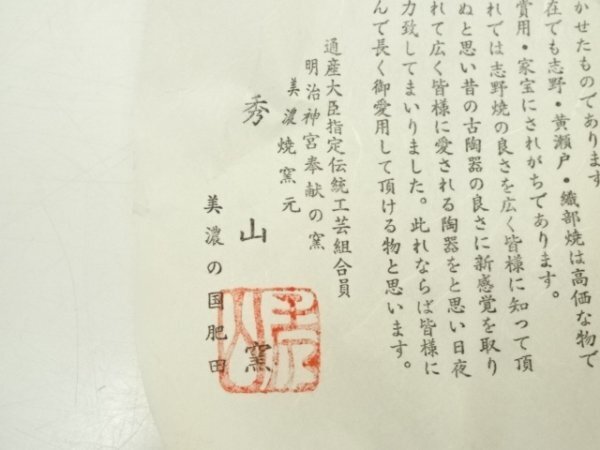 かせたものであります
在でも志野・黄瀬戸・織部焼は高価な物で
賞用・家宝にされがちであります。
れでは志野焼の良さを広く皆様に知って頂
ぬと思い昔の古陶器の良さに新感覚を取り
れて広く皆様に愛される陶器をと思い日夜
力致してまいりました。此れならば皆様に
んで長く御愛用して頂ける物と思います。
通産大臣指定伝統工芸組合員
明治神宮奉献の窯
美濃焼窯元
秀山窯
美濃の国肥田